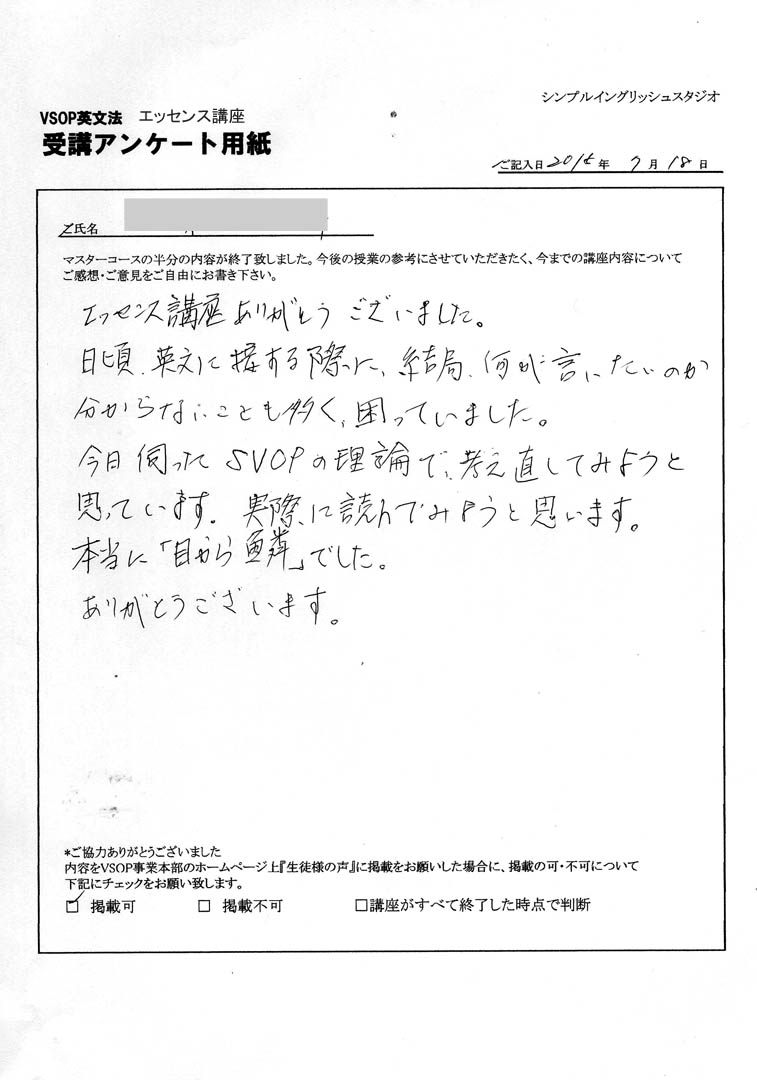 シンプルイングリッシュスタジオ
VSOP英文法 エッセンス講座
受講アンケート用紙
ご記入日 2015年 7月 18日
ご氏名
マスターコースの半分の内容が終了致しました。今後の授業の参考にさせていただきたく、今までの講座内容について
ご感想・ご意見をご自由にお書き下さい。
エッセンス講座ありがとうございました。
日頃、英文に接する際に、結局、何が言いたいのか
分からないことも多く、困っていました。
今日伺った SVOPの理論で、考え直してみようと
思っています。実際に読んでみようと思います。
本当に「目から鱗」でした。
ありがとうございます。
*ご協力ありがとうございました
内容をVSOP事業本部のホームページ上『生徒様の声』に掲載をお願いした場合に、掲載の可・不可について
下記にチェックをお願い致します。
☑ 掲載可 □ 掲載不可 □講座がすべて終了した時点で判断